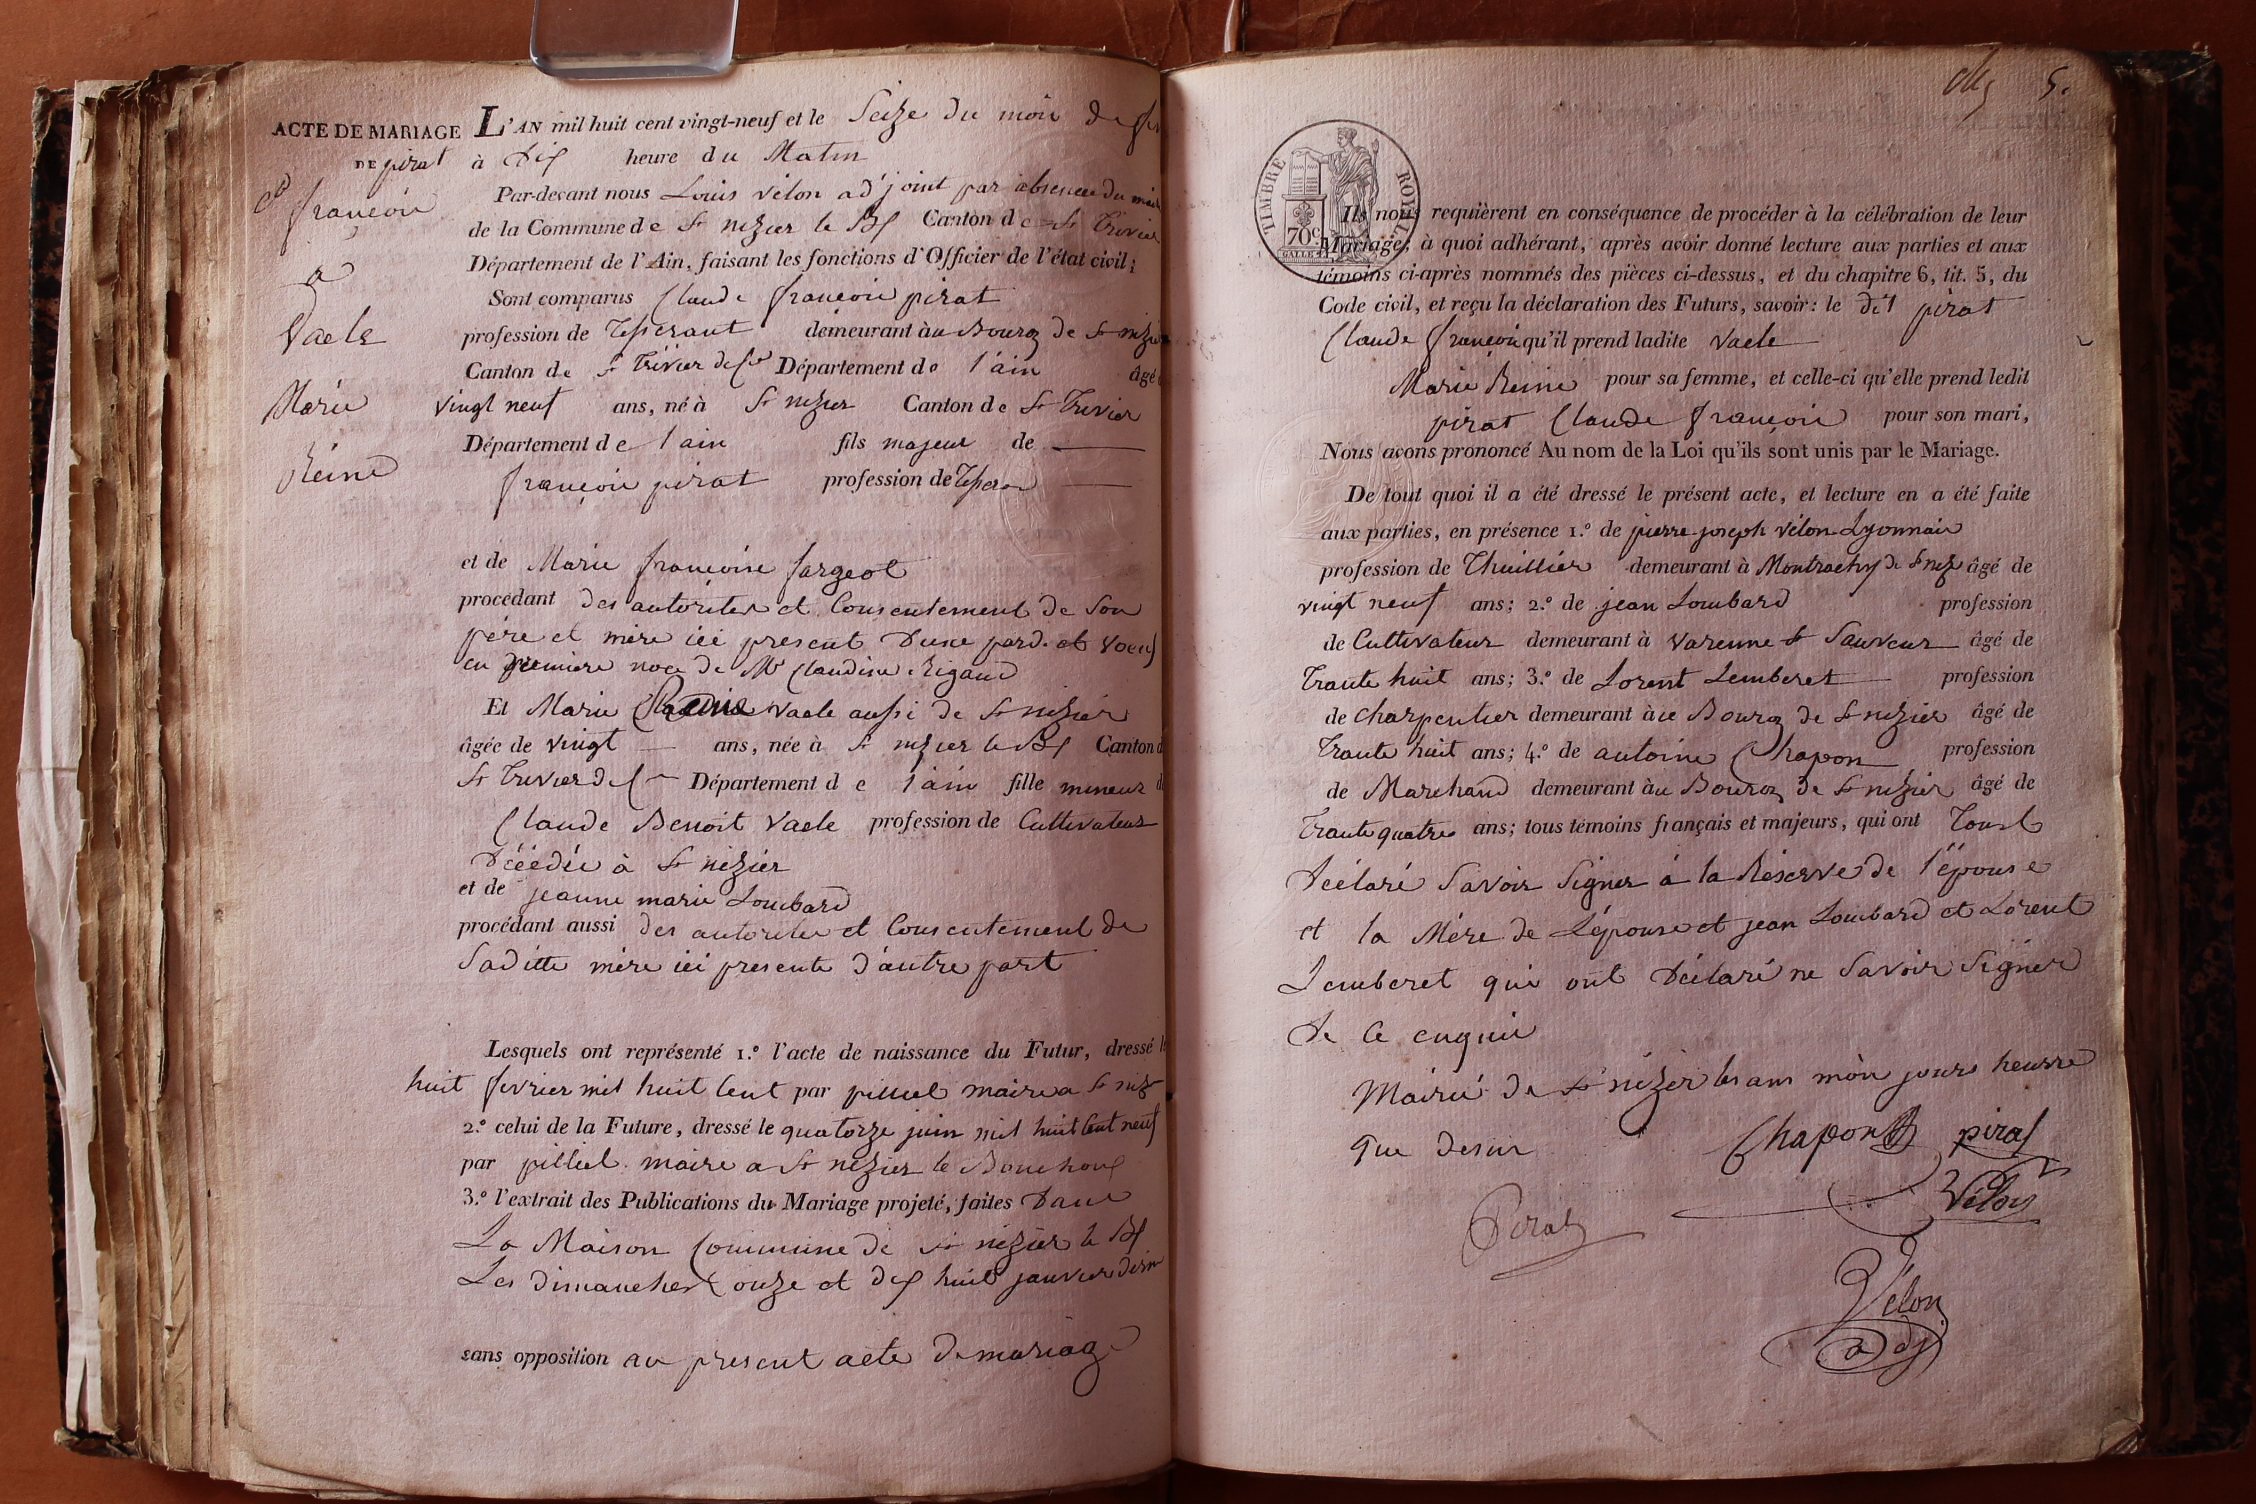 ACTE DE MARIAGE
DE pirat
Cd
françois
a
Vaele
Marie
Reine
L'AN mil huit cent vingt-neuf et le Seize du mois de
à Dix heure du Matin
Par-devant nous Louis vélon adjoint par absence du
de la Commune de St nizier le Canton de St Trivier
Département de l'Ain, faisant les fonctions d'Officier de l'état civil;
Sont comparus Claude françois pirat
profession de Tisserant demeurant au Bourg de St nizier
Canton de St Trivier de Département de l'ain âgé
vingt neuf ans, né à St nizier Canton de St Trivier
Département de l'ain fils majeur de
françois pirat profession de
et de Marie françoise fargeot
procédant des autorités et Consentement de Son
père et mère ici present D'une pard. et
en premiere noce de Claudine Rigaud
Et Marie Reine vaele aussi de St nizier
âgée de vingt ans, née à St nizier le Canton
St Trivier de Département de l'ain fille mineur
Claude Benoit Vaele profession de Cultivateur
Décédée à St nizier
et de jeanne marie Lombard
procédant aussi des autorites et Consentement de
Saditte mère ici presente d'autre part
Lesquels ont représenté 1.° l'acte de naissance du Futur, dressé
huit fevrier mil huit Cent par pilliel maire a St
2.° celui de la Future, dressé le quatorze juin mil huit Cent neuf
par pilliel maire a St nizier le Bouchoux
3.° l'extrait des Publications du Mariage projeté, faites Dans
La Maison Commune de St nizier le
Les dimanches onze et dix huit janvier
sans opposition au present acte de mariage
5.
TIMBRE ROYAL
70c
GALLE
Ils nous requièrent en conséquence de procéder à la célébration de leur
Mariage; à quoi adhérant, après avoir donné lecture aux parties et aux
témoins ci-après nommés des pièces ci-dessus, et du chapitre 6, tit. 5, du
Code civil, et reçu la déclaration des Futurs, savoir: le dit pirat
Claude françois qu'il prend ladite vaele
Marie Reine pour sa femme, et celle-ci qu'elle prend ledit
pirat Claude françois pour son mari,
Nous avons prononcé Au nom de la Loi qu'ils sont unis par le Mariage.
De tout quoi il a été dressé le présent acte, et lecture en a été faite
aux parties, en présence 1.° de pierre joseph vélon Lyonnais
profession de Thuillier demeurant à de St âgé de
vingt neuf ans; 2.° de jean Lombard profession
de Cultivateur demeurant à varenne St Sauveur âgé de
Trante huit ans; 3.° de Lorent Lemberet profession
de charpentier demeurant au Bourg de St nizier âgé de
Trante huit ans; 4.° de antoine Chapon profession
de Marchand demeurant au Bourg de St nizier âgé de
Trante quatre ans; tous témoins français et majeurs, qui ont Tous
déclaré Savoir Signer à la Réserve de l'épouse
et la Mère de L'épouse et jean Lombard et Lorent
Lemberet qui ont Déclaré ne Savoir Signer
de ce enquis
Mairie de St nizier les ans mois jours heurre
que desur
Chapon pirat
Vélon
Pirat
Vélon
adj